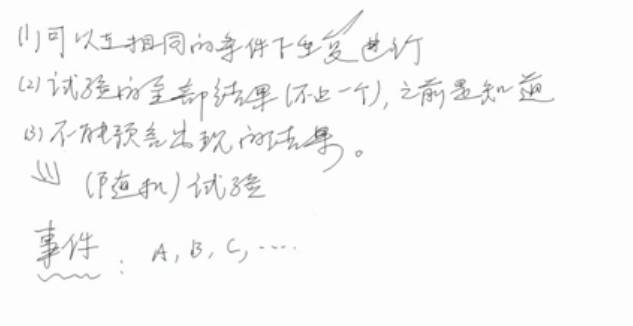 (1)可以在相同的条件下重复进行
(2)试验的全部结果(不止一个),之前是知道
(3)不能预言出现的结果。
⇓ (随机)试验
事件: A, B, C, ....